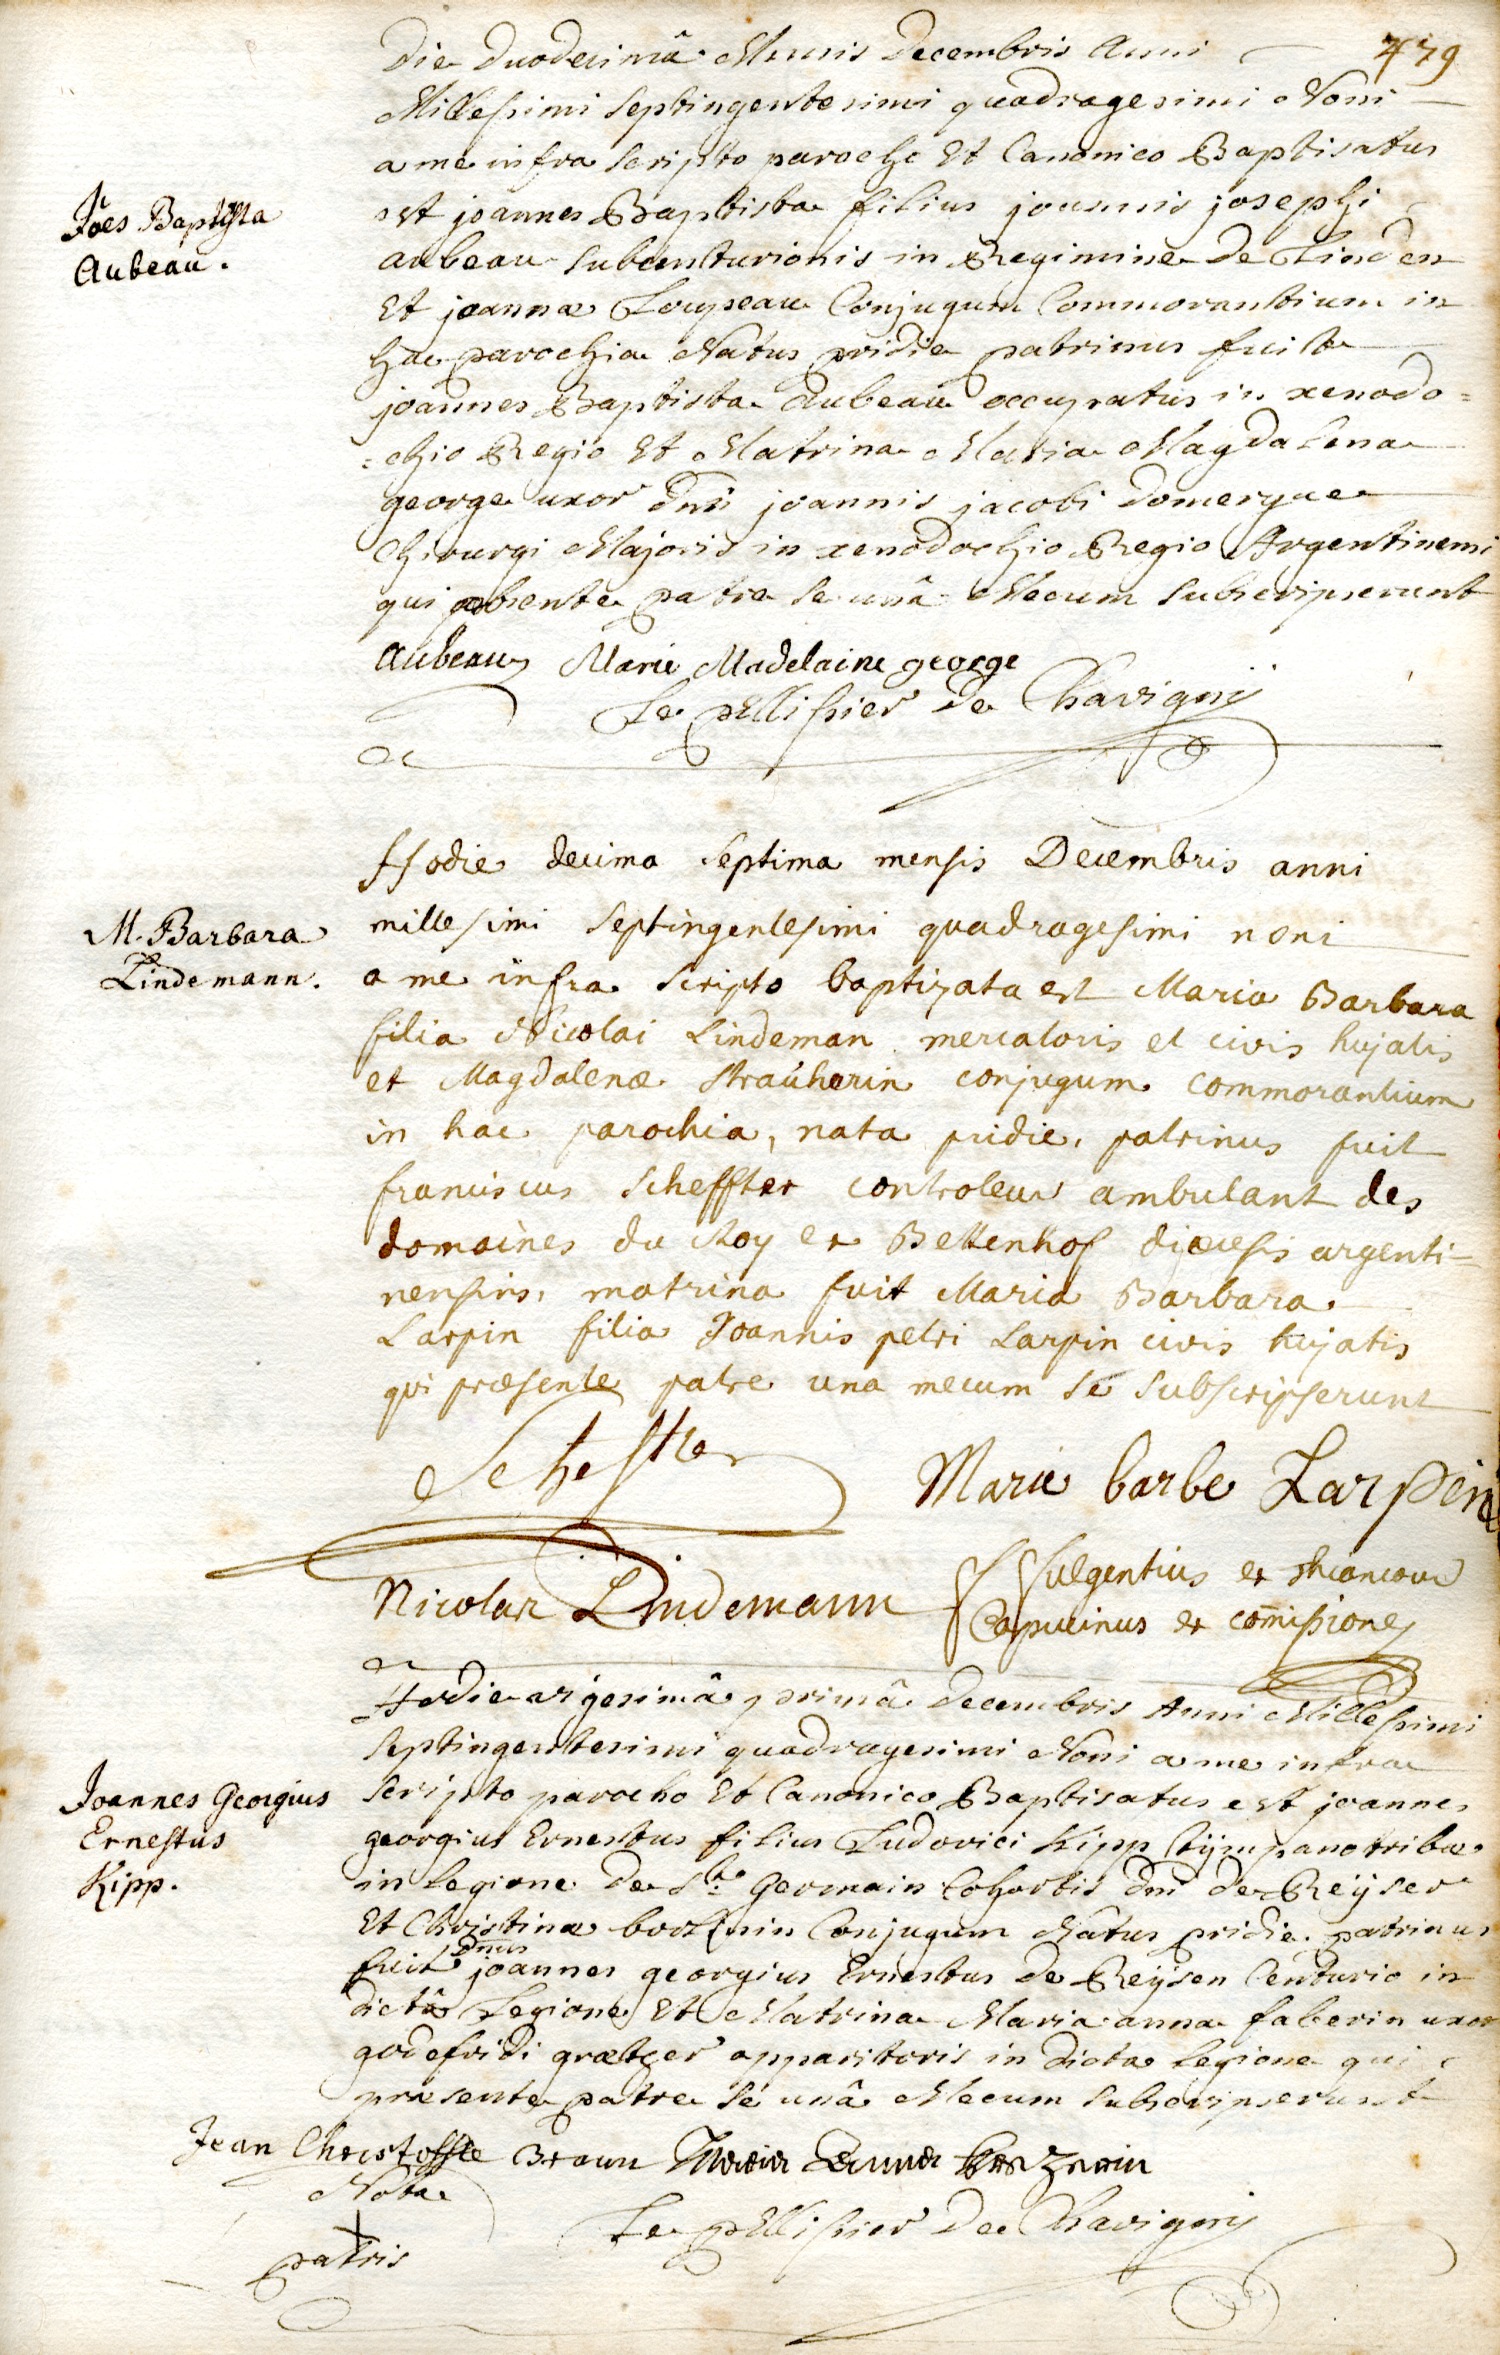 479
Die duodecimâ Mensis Decembris Anni
Millesimi septingentesimi quadragesimi Noni
a me infra scripto parocho Et Canonico Baptisatus
Joes Baptista
Aubeau.
est joannes Baptista filius joannis josephi
aubeau subcenturionis in Regimine de Linden
Et joannæ Loupeau Conjugum Commorantium in
hac parochia Natus pridie patrinus fuit
joannes Baptista Aubeau occupatus in xenodo=
=chio Regio Et Matrina Maria Magdalena
george uxor dni joannis jacobi Domergue
Chirurgi Majoris in xenodochio Regio Argentinensi
qui absente patre se unâ Mecum subscripserunt
Aubeau Marie Madelaine george
Le pellissier de Chavigny
Hodie decima septima mensis Decembris anni
M. Barbara
Lindemann.
millesimi septingentesimi quadragesimi noni
a me infra scripto baptizata est Maria Barbara
filia Nicolai Lindeman mercatoris et civis hujatis
et Magdalenæ Straüherin conjugum commorantium
in hac parochia, nata pridie, patrinus fuit
franciscus Scheffter controleur ambulant des
domaines du Roy ex Bettenhof diœcesis argenti-
nensis, matrina fuit Maria Barbara
Larpin filia Joannis petri Larpin civis hujatis
qui præsente patre una mecum se subscripserunt
Scheffter
Marie barbe Larpin
Nicolas Lindemann
F Fulgentius ex
Capucinus ex com̄issione
Hodie vigesimâ primâ Decembris Anni Millesimi
septingentesimi quadragesimi Noni a me infra
Joannes Georgius
Ernestus
Kipp.
scripto parocho Et Canonico Baptisatus est joannes
georgius Ernestus filius Ludovici Kipp tympanotribæ
in legione de St Germain Cohortis dni de Reyser
Et Christinæ Conjugum Natus pridie. patrinus
fuit dnus joannes georgius Ernestus de Reysen Centurio in
dictâ Legione Et Matrina Maria anna faberin uxor
godefridi grætzer apparitoris in dicta legione qui
præsente patre se unâ Mecum subscripserunt
Jean Christoffle Braun Maria Anna
Nota
+
patris
Le pellissier de Chavigny